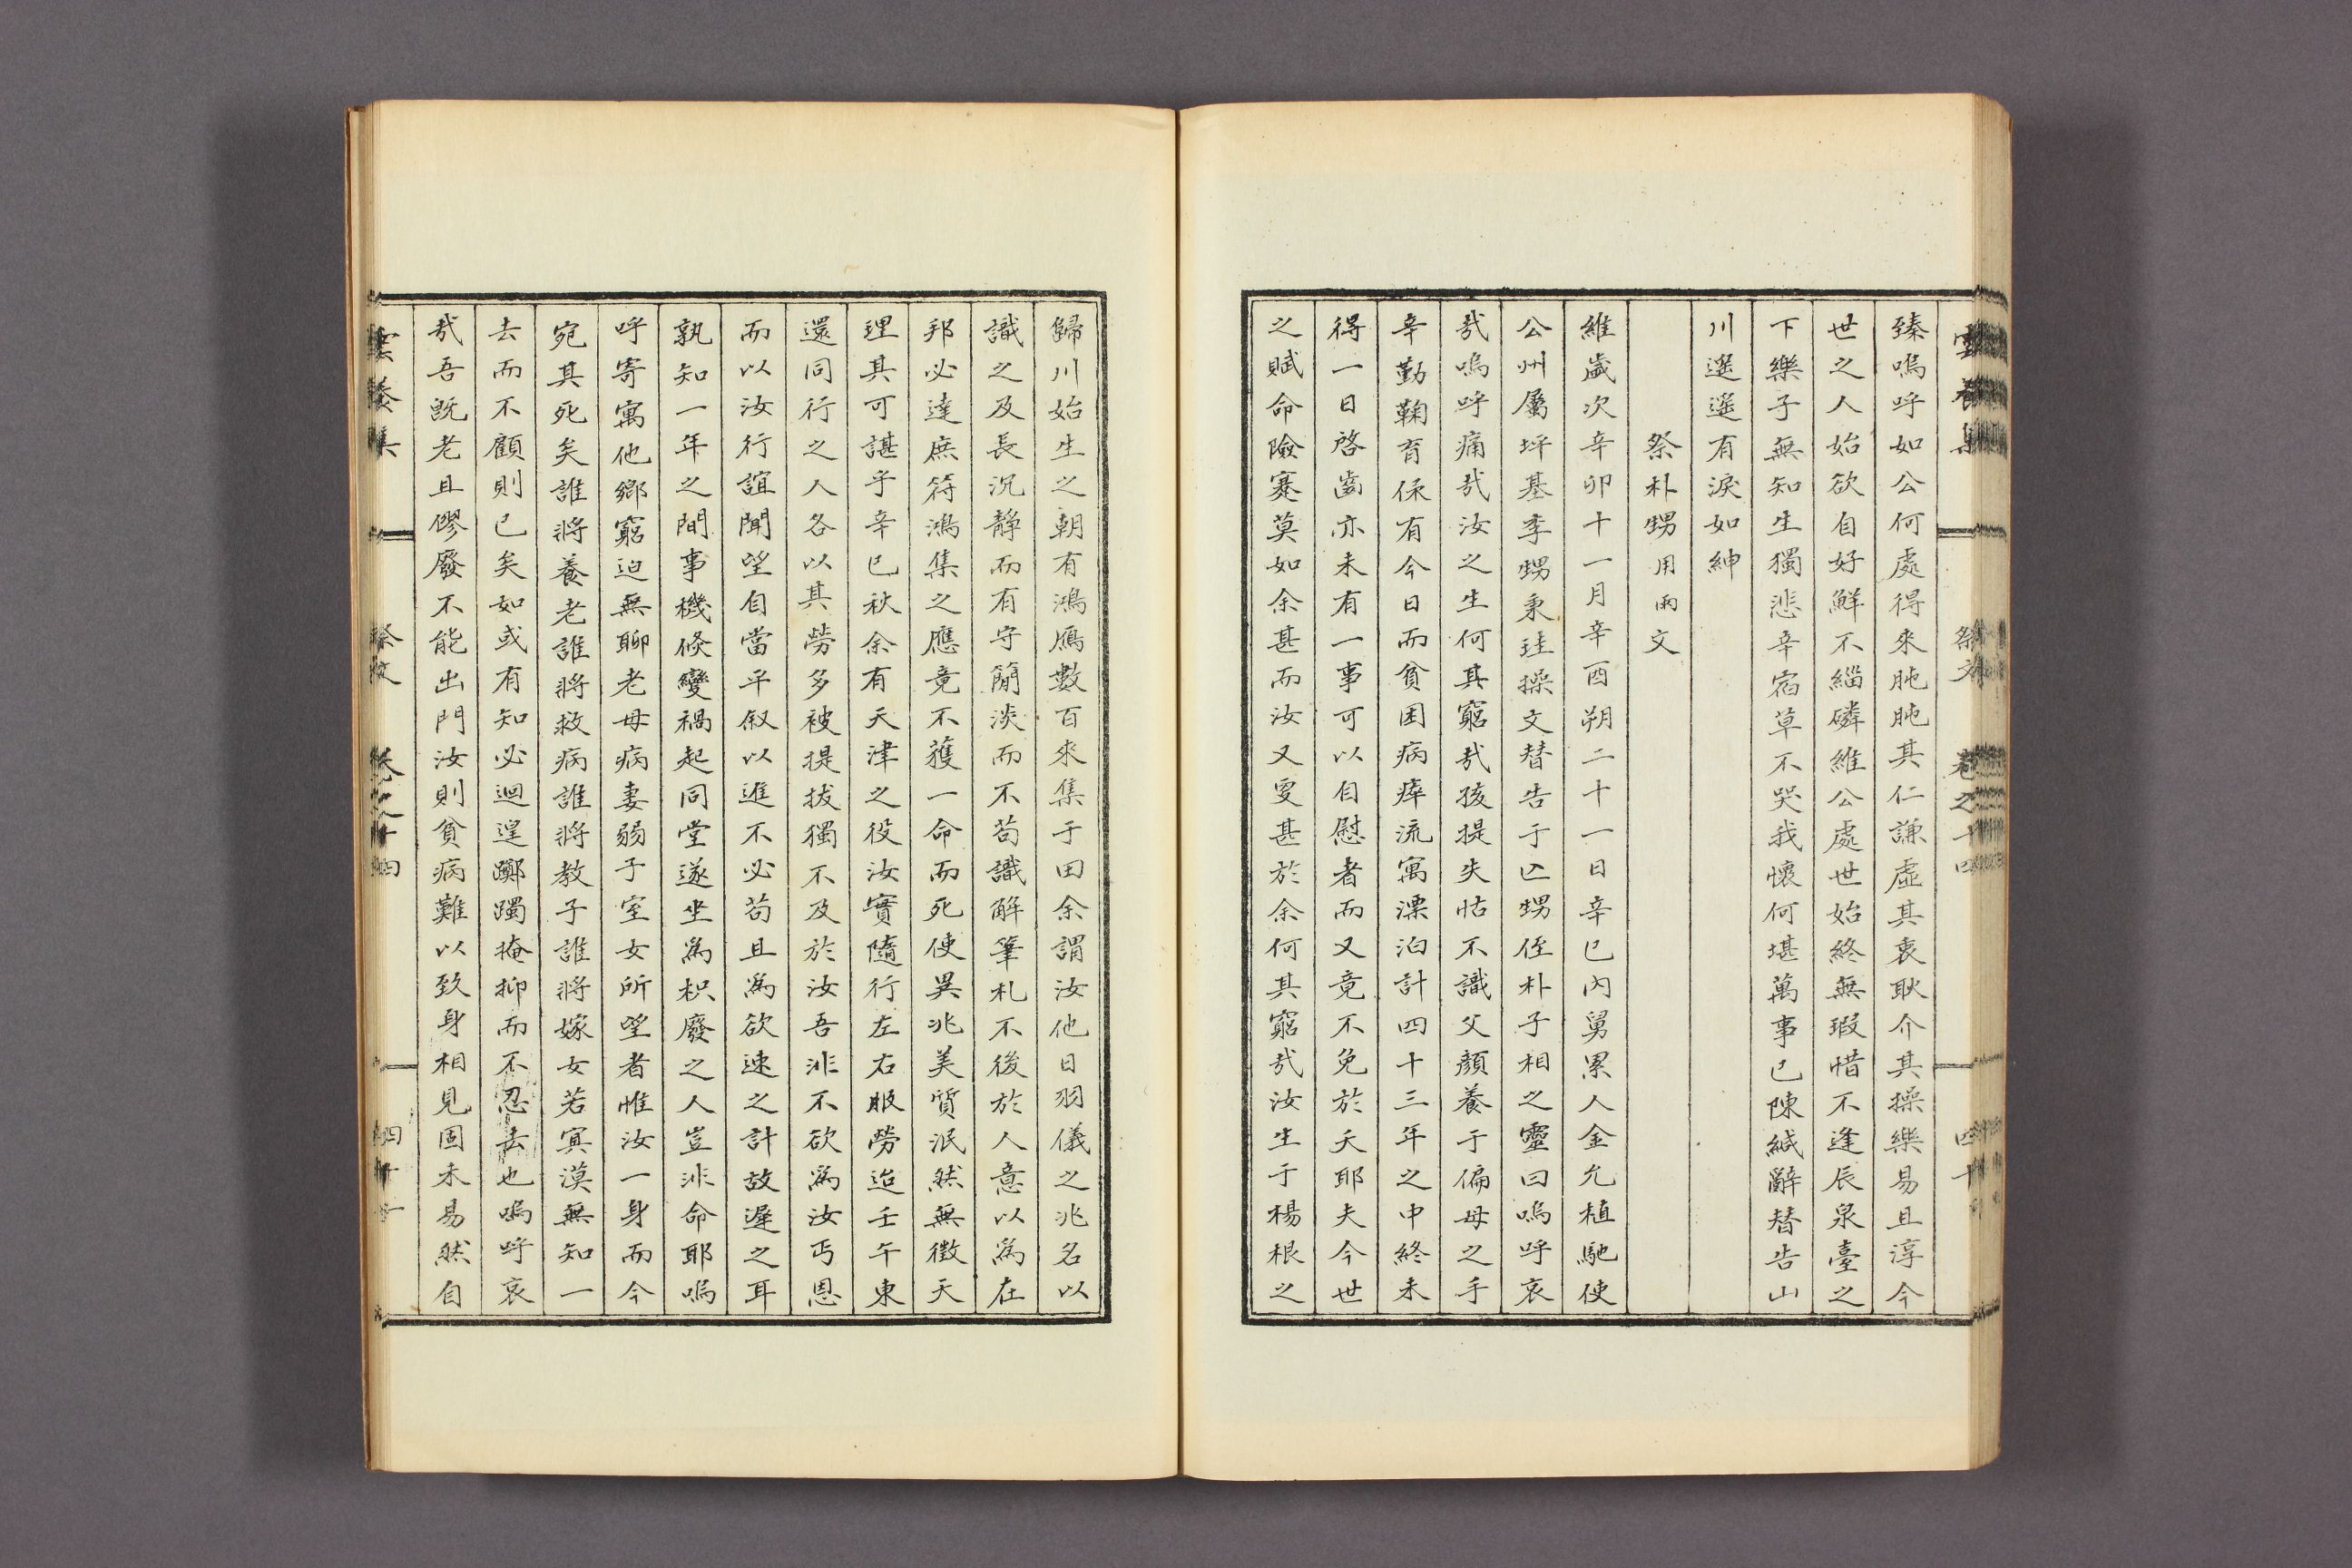 臻嗚呼如公何處得來肫肫其仁謙虛其衷耿介其操樂易且淳今
世之人始欲自好鮮不緇磷維公處世始終無瑕惜不逢辰泉臺之
下樂子無知生獨悲辛宿草不哭我懷何堪萬事已陳緘辭替告山
川遙遙有淚如紳
祭朴甥用雨文
維歲次辛卯十一月辛酉朔二十一日辛巳內舅累人金允植馳使
公州屬坪基李甥秉珪操文替告于亡甥侄朴子相之靈曰嗚呼哀
哉嗚呼痛哉汝之生何其窮哉孩提失怙不識父顏養于偏母之手
辛勤鞠育保有今日而貧困病瘁流寓漂泊計四十三年之中終未
得一日啓齒亦未有一事可以自慰者而又竟不免於夭耶夫今世
之賦命險蹇莫如余甚而汝又更甚於余何其窮哉汝生于楊根之
歸川始生之朝有鴻鴈數百來集于田余謂汝他日羽儀之兆名以
識之及長沉靜而有守簡淡而不苟識解筆札不後於人意以爲在
邦必達庶符鴻集之應竟不獲一命而死使異兆美質泯然無徵天
理其可諶乎辛巳秋余有天津之役汝實隨行左右服勞迨壬午東
還同行之人各以其勞多被提拔獨不及於汝吾非不欲爲汝丐恩
而以汝行誼聞望自當平敍以進不必苟且爲欲速之計故遲之耳
孰知一年之間事機倏變禍起同堂遂坐爲枳廢之人豈非命耶嗚
呼寄寓他鄉窮迫無聊老母病妻弱子室女所望者惟汝一身而今
宛其死矣誰將養老誰將救病誰將教子誰將嫁女若冥漠無知一
去而不顧則已矣如或有知必迴遑躑躅掩抑而不忍去也嗚呼哀
哉吾旣老且僇廢不能出門汝則貧病難以致身相見固未易然自
雲養集 祭文 卷之十四 四十一